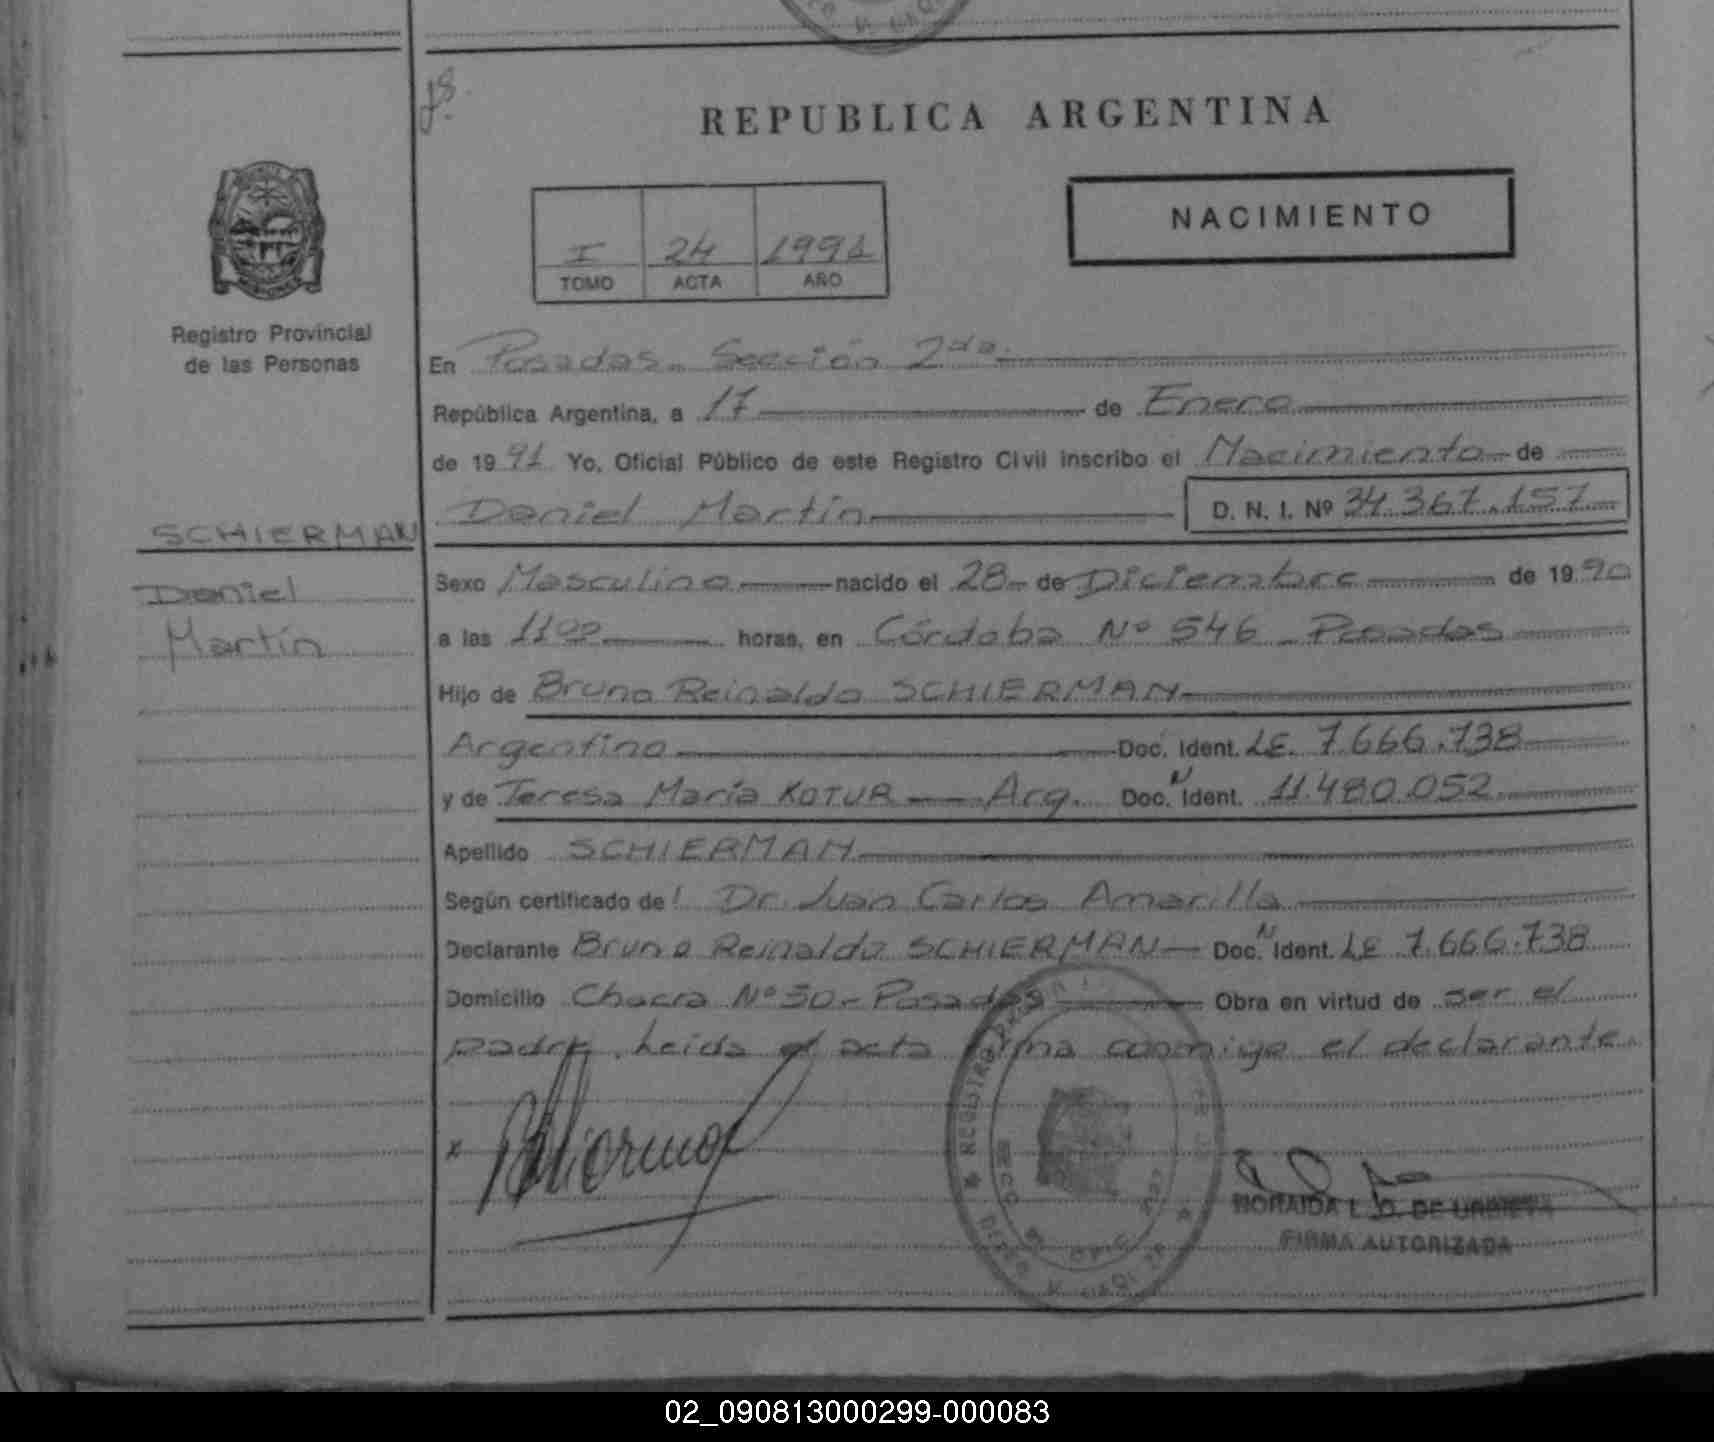 REPUBLICA ARGENTINA
NACIMIENTO
I 24 1991
TOMO ACTA AÑO
Registro Provincial
de las Personas
En Posadas. Sección 2da.
República Argentina, a 17 de Enero
de 1991 Yo, Oficial Público de este Registro Civil inscribo el Nacimiento de
Daniel Martín D. N. I. Nº 34.367.157
SCHIERMAN
Daniel
Martín
Sexo Masculino nacido el 28 de Diciembre de 1990
a las 1100 horas, en Córdoba Nº 546 Posadas
Hijo de Bruno Reinaldo SCHIERMAN
Argentino Doc. Ident. LE. 7.666.738
y de Teresa María KOTUR Arg. Doc. N Ident. 11.480.052
Apellido SCHIERMAN
Según certificado de! Dr. Juan Carlos Amarilla
Declarante Bruno Reinaldo SCHIERMAN Doc. N Ident. LE 7.666.738
Domicilio Chacra Nº 30 - Posadas Obra en virtud de ser el
padre. Leida el acta firma conmigo el declarante.
x
REGISTRO
FIRMA AUTORIZADA
02_090813000299-000083